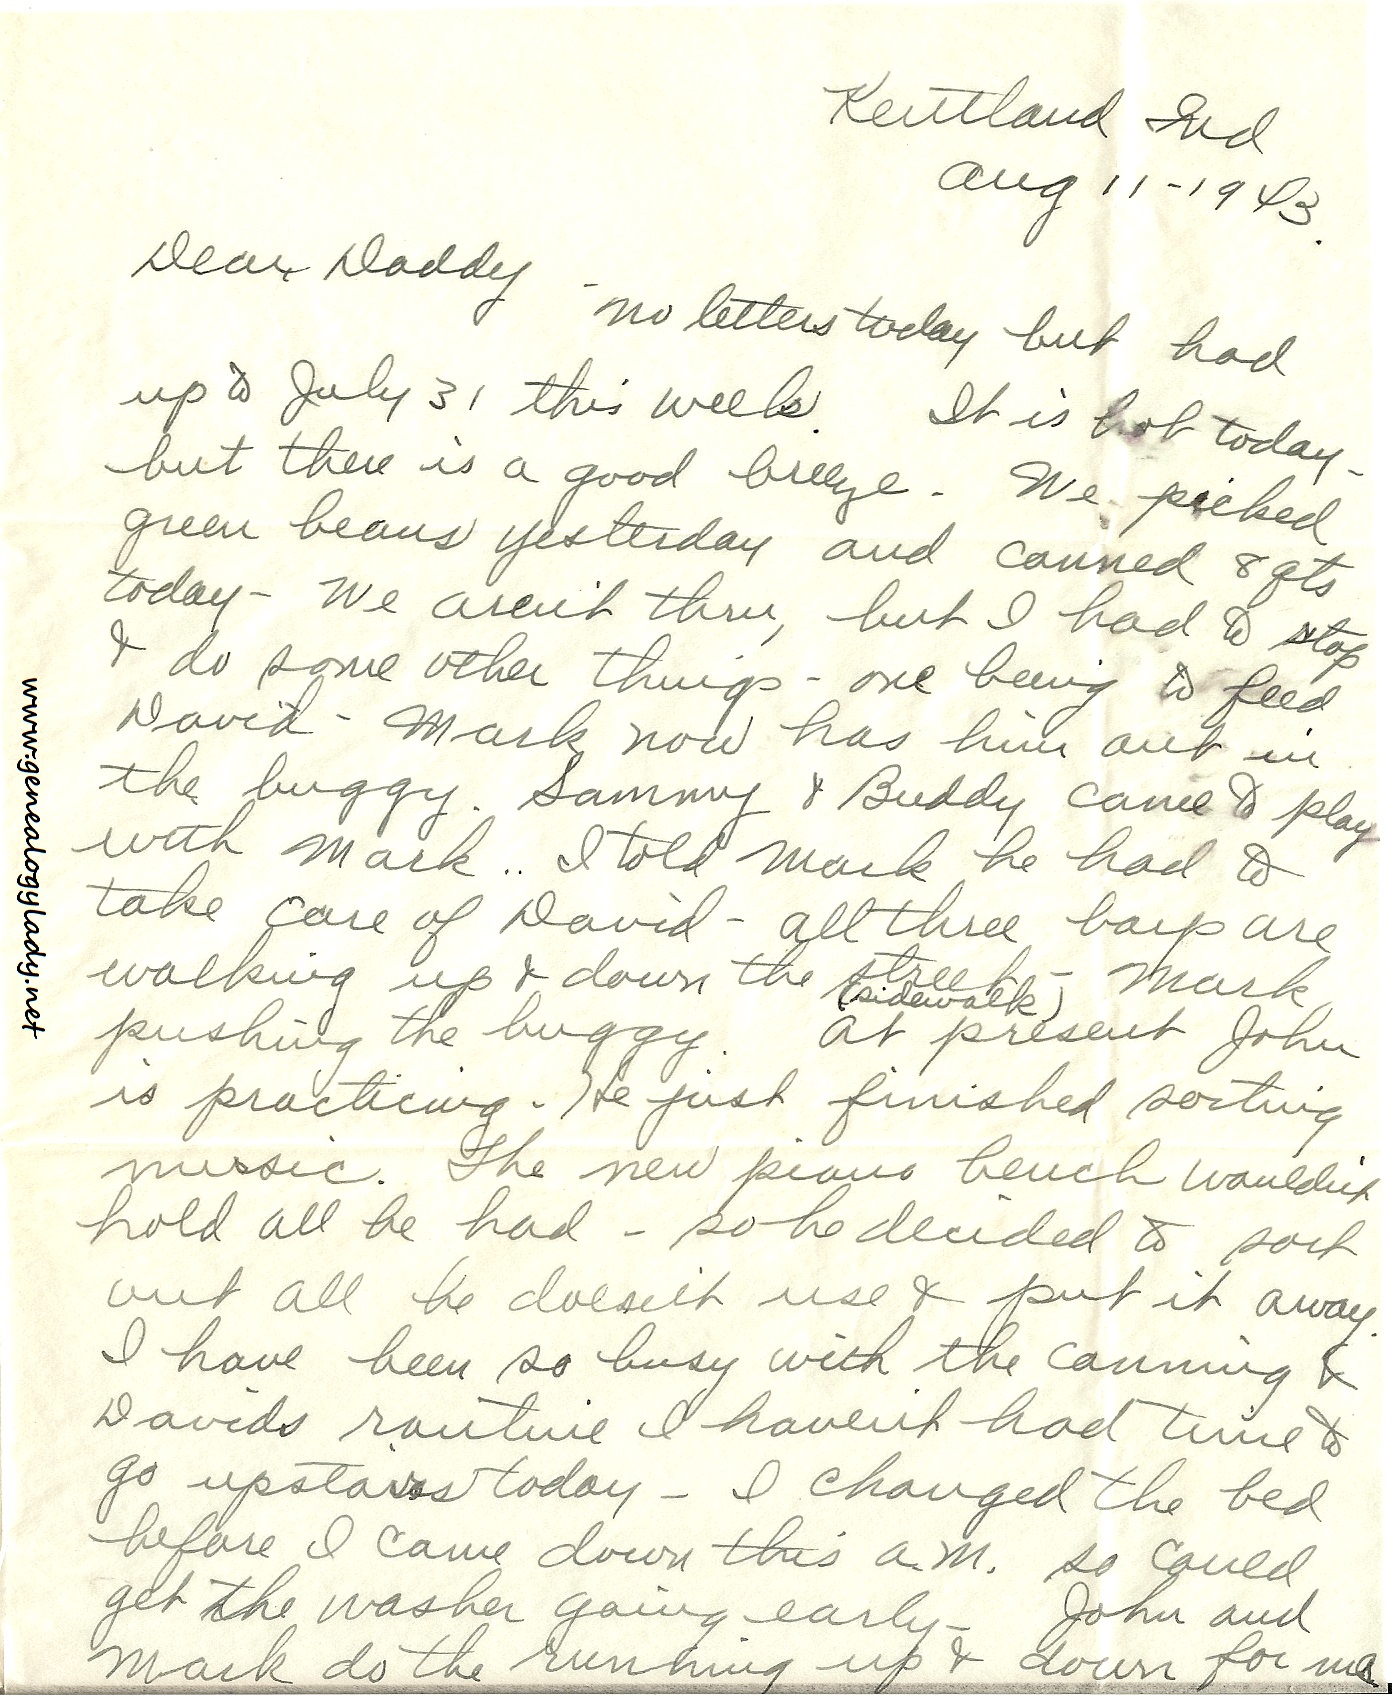 Kentland Ind
Aug 11-1943.
Dear Daddy
- No letters today but had
up to July 31 this week. It is hot today-
but there is a good breeze. We picked
green beans yesterday and canned 8 qts
today- We aren't thru, but I had to stop
& do some other things - one being to feed
David - Mark now has him out in
the buggy. Sammy & Buddy came to play
with Mark.. I told Mark he had to
take care of David - all three boys are
walking up & down the street - Mark
(sidewalk)
pushing the buggy. At present John
is practicing. He just finished sorting
mussic. The new piano bench wouldn't
hold all he had - so he decided to sort
out all he doesn't use & put it away.
I have been so busy with the canning &
Davids routine I haven't had time to
go upstairs today - I changed the bed
before I came down this a.m. so could
get the washer going early- John and
Mark do the running up & down for me.
www.genealogylady.net